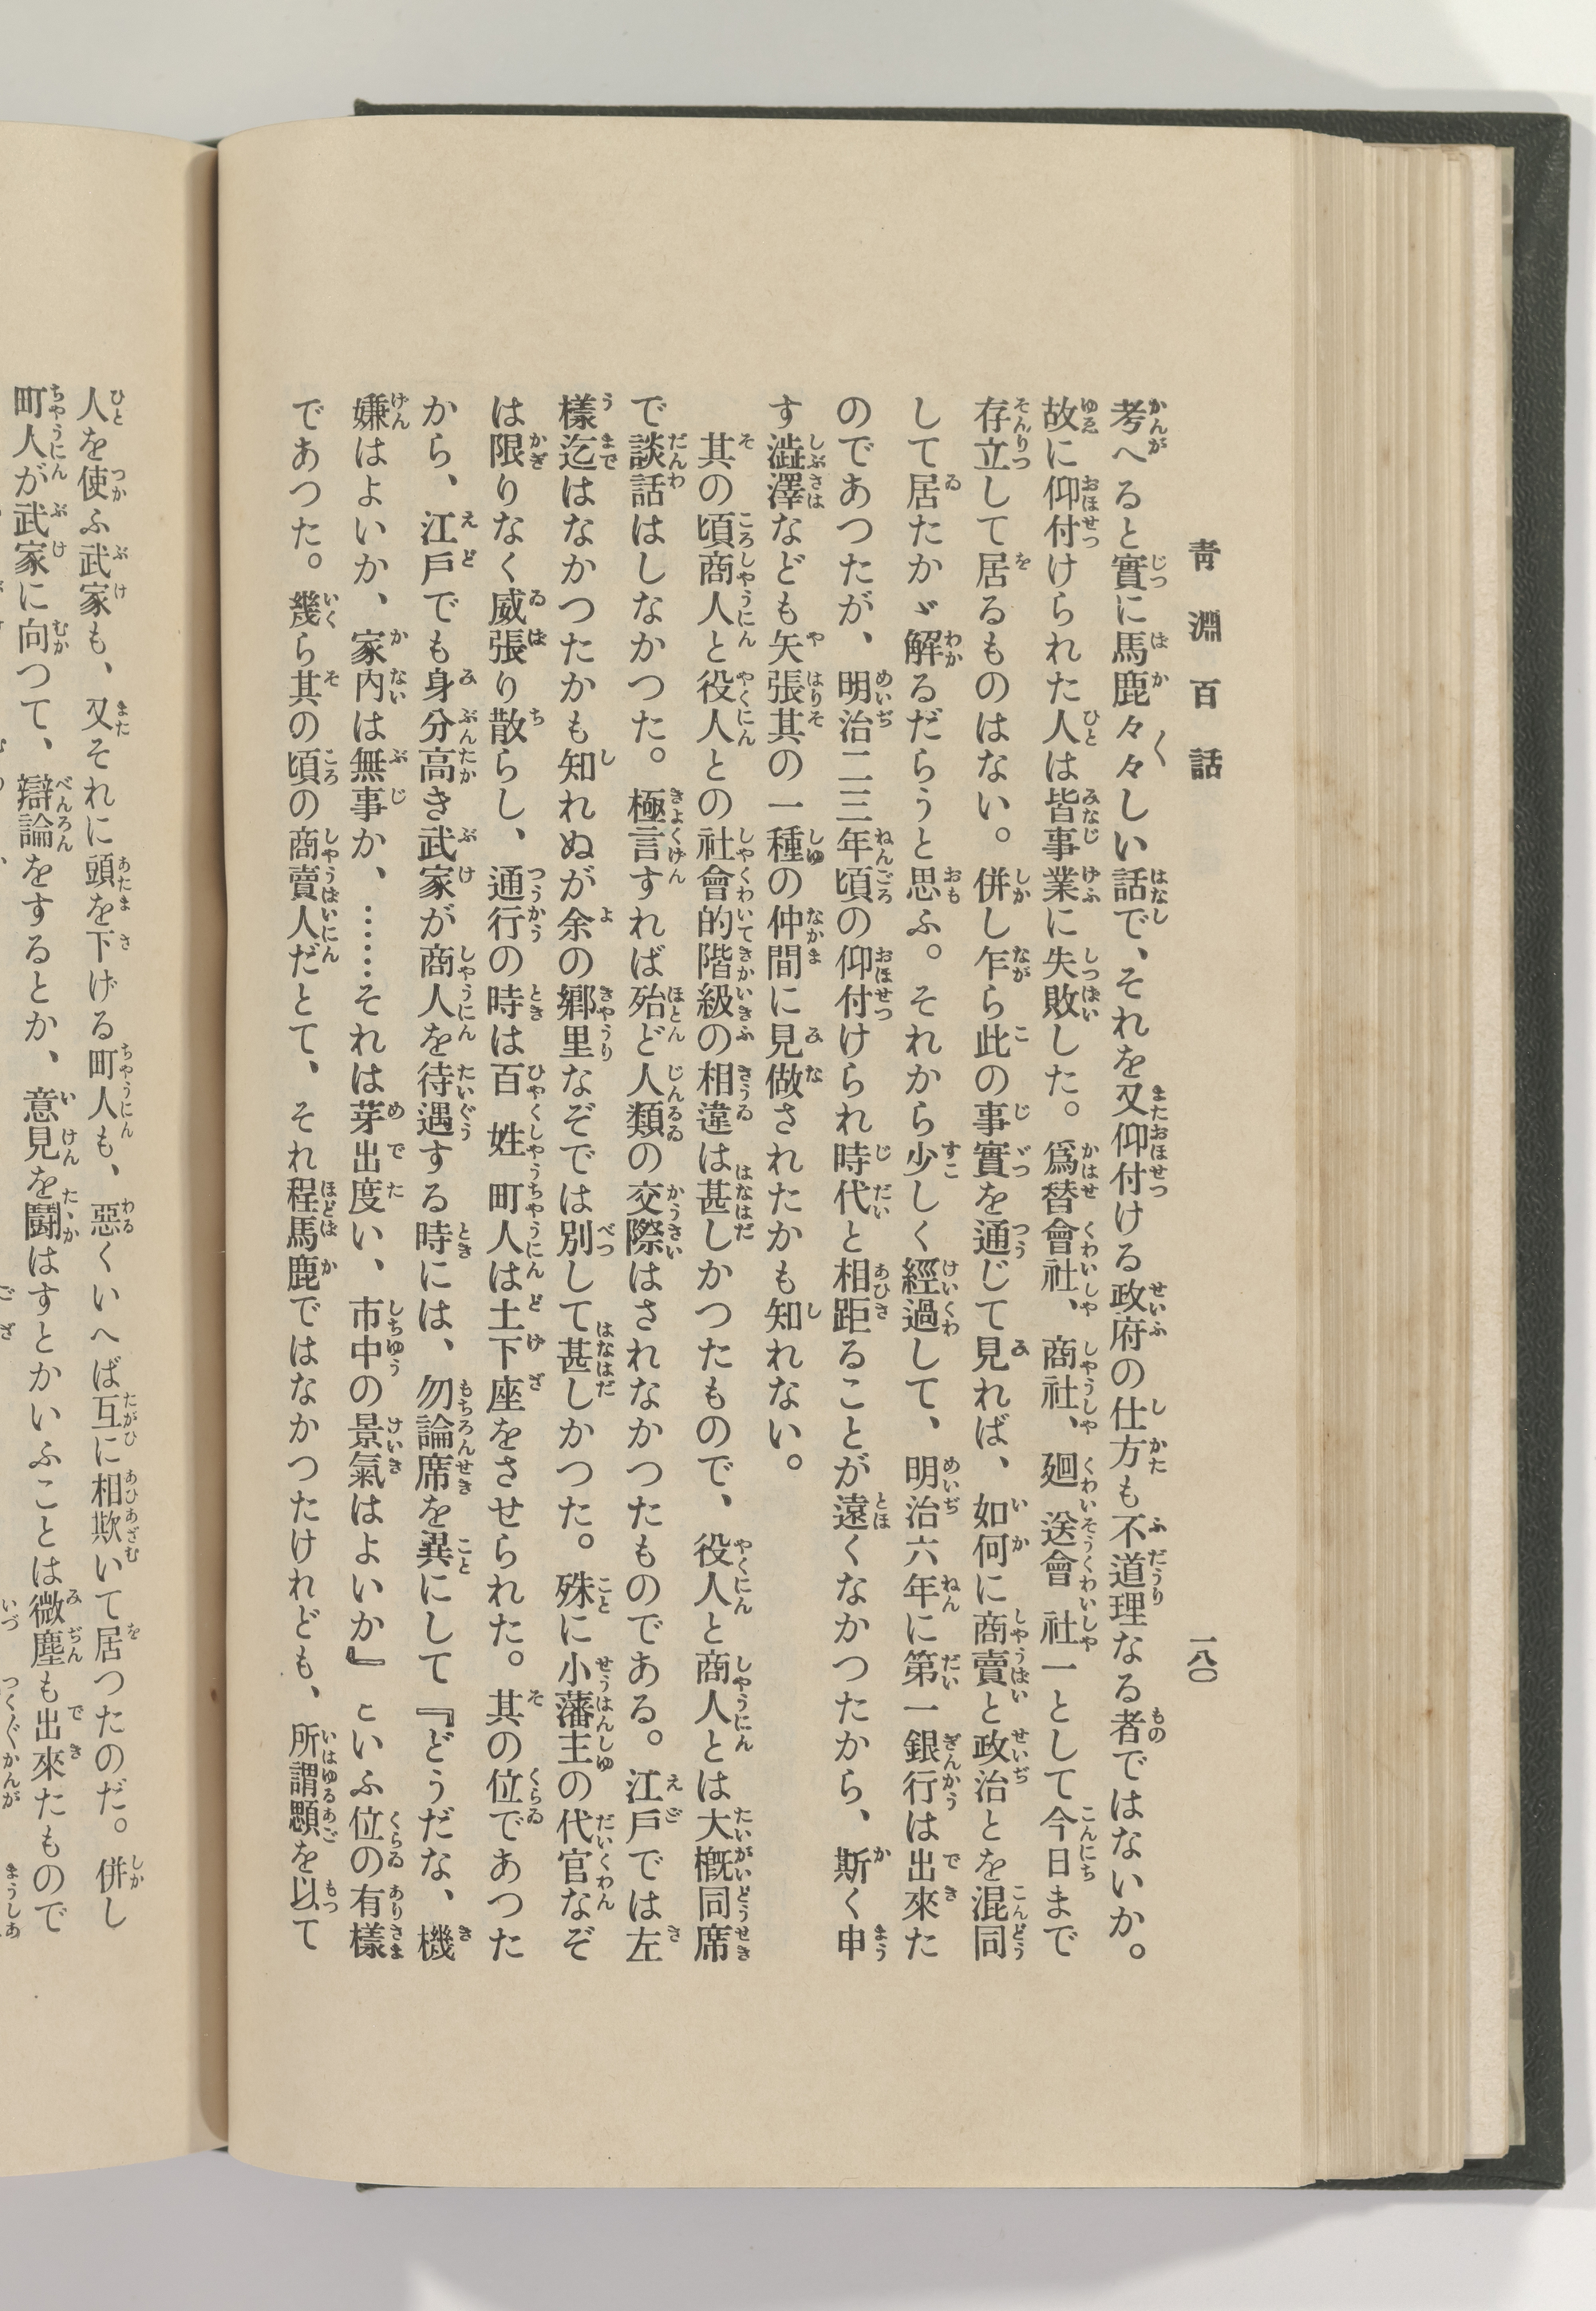 靑淵百話
一八〇
考へると實に馬鹿々々しい話で、それを又仰付ける政府の仕方も不道理なる者ではないか。
故に仰付けられた人は皆事業に失敗した。爲替會社、商社、廻送會社一として今日まで
存立して居るものはない。併し乍ら此の事實を通じて見れば、如何に商賣と政治とを混同
して居たかゞ解るだらうと思ふ。それから少しく經過して、明治六年に第一銀行は出來た
のであつたが、明治二三年頃の仰付けられ時代と相距ることが遠くなかつたから、斯く申
す澁澤なども矢張其の一種の仲間に見做されたかも知れない。
其の頃商人と役人との社會的階級の相違は甚しかつたもので、役人と商人とは大槪同席
で談話はしなかつた。極言すれば殆ど人類の交際はされなかつたものである。江戶では左
樣迄はなかつたかも知れぬが余の鄕里なぞでは別して甚しかつた。殊に小藩主の代官なぞ
は限りなく威張り散らし、通行の時は百姓町人は土下座をさせられた。其の位であつた
から、江戶でも身分高き武家が商人を待遇する時には、勿論席を異にして『どうだな、機
嫌はよいか、家內は無事か、……それは芽出度い、市中の景氣はよいか』といふ位の有樣
であつた。幾ら其の頃の商賣人だとて、それ程馬鹿ではなかつたけれども、所謂顋を以て
人を使ふ武家も、又それに頭を下げる町人も、惡くいへば互に相欺いて居つたのだ。併し
町人が武家に向つて、辯論をするとか、意見を鬪はすとかいふことは微塵も出來たもので